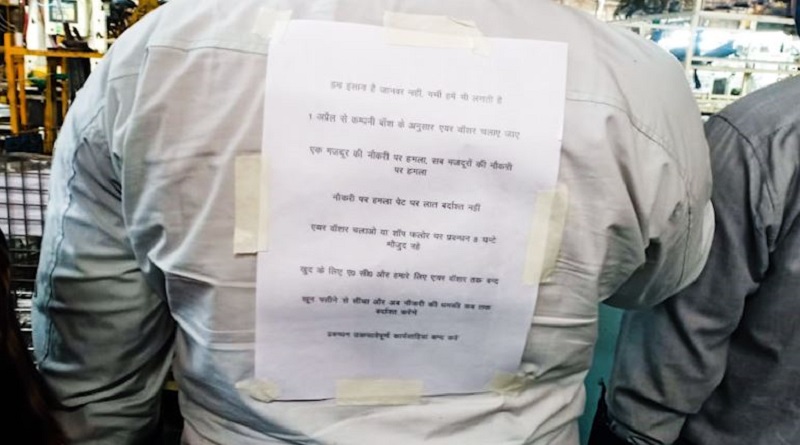 हम इंसान है जानवर नहीं, गर्मी हमें भी लगती है
1 अप्रैल से कम्पनी बोंश के अनुसार एयर वॉशर चलाए जाए
एक मजदूर की नौकरी पर हमला, सब मजदूरों की नौकरी
पर हमला
नौकरी पर हमला पेट पर लात बर्दाश्त नहीं
एयर वॉशर चलाओ या शॉप फ्लोर पर प्रबन्धन 8 घन्टे
मौजूद रहे
खुद के लिए ए0 सी0 और हमारे लिए एयर वॉशर तक बन्द
खून पसीने से सींचा और अब नौकरी की धमकी कब तक
बर्दाश्त करेंगे
प्रबन्धन उकसावेपूर्ण कार्यवाहियां बन्द करें